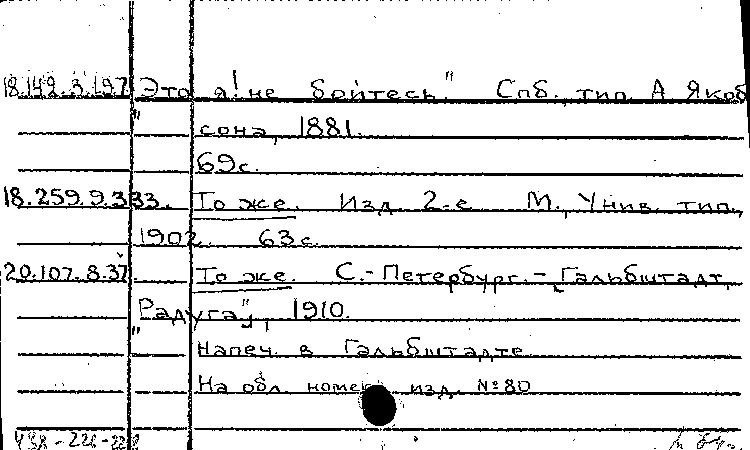 18.149.3.197 Это я! не бойтесь" Спб., тип. А. Якоб
" сона, 1881.
69с.
18.259.9.333. То же. Изд. 2-е М., Унив. тип.,
1902. 63с.
20.107.8.37. То же. С.-Петербург.-Гальбштадт,
"Радуга", 1910.
Напеч. в Гальбштадте
На обл. номер изд. №80